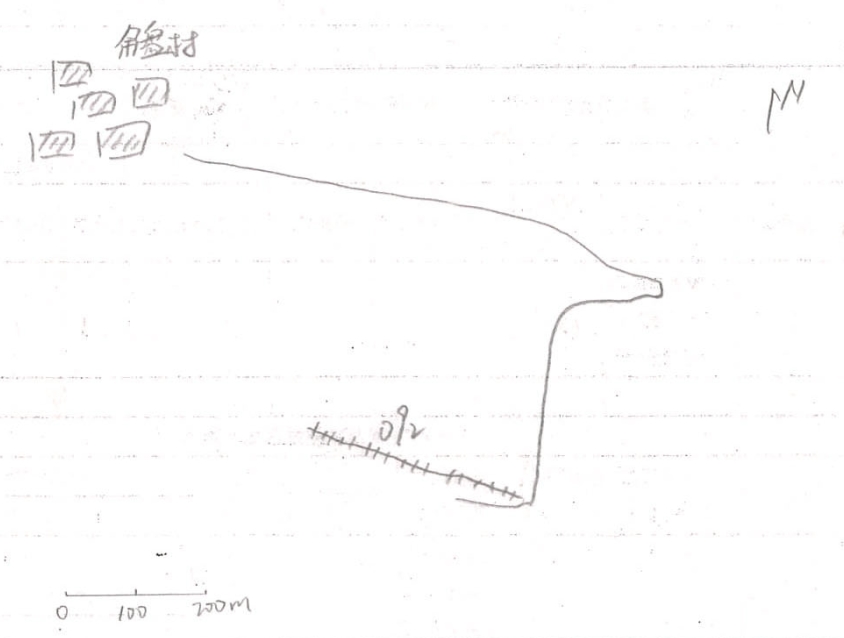 村
N
092
0 100 200m